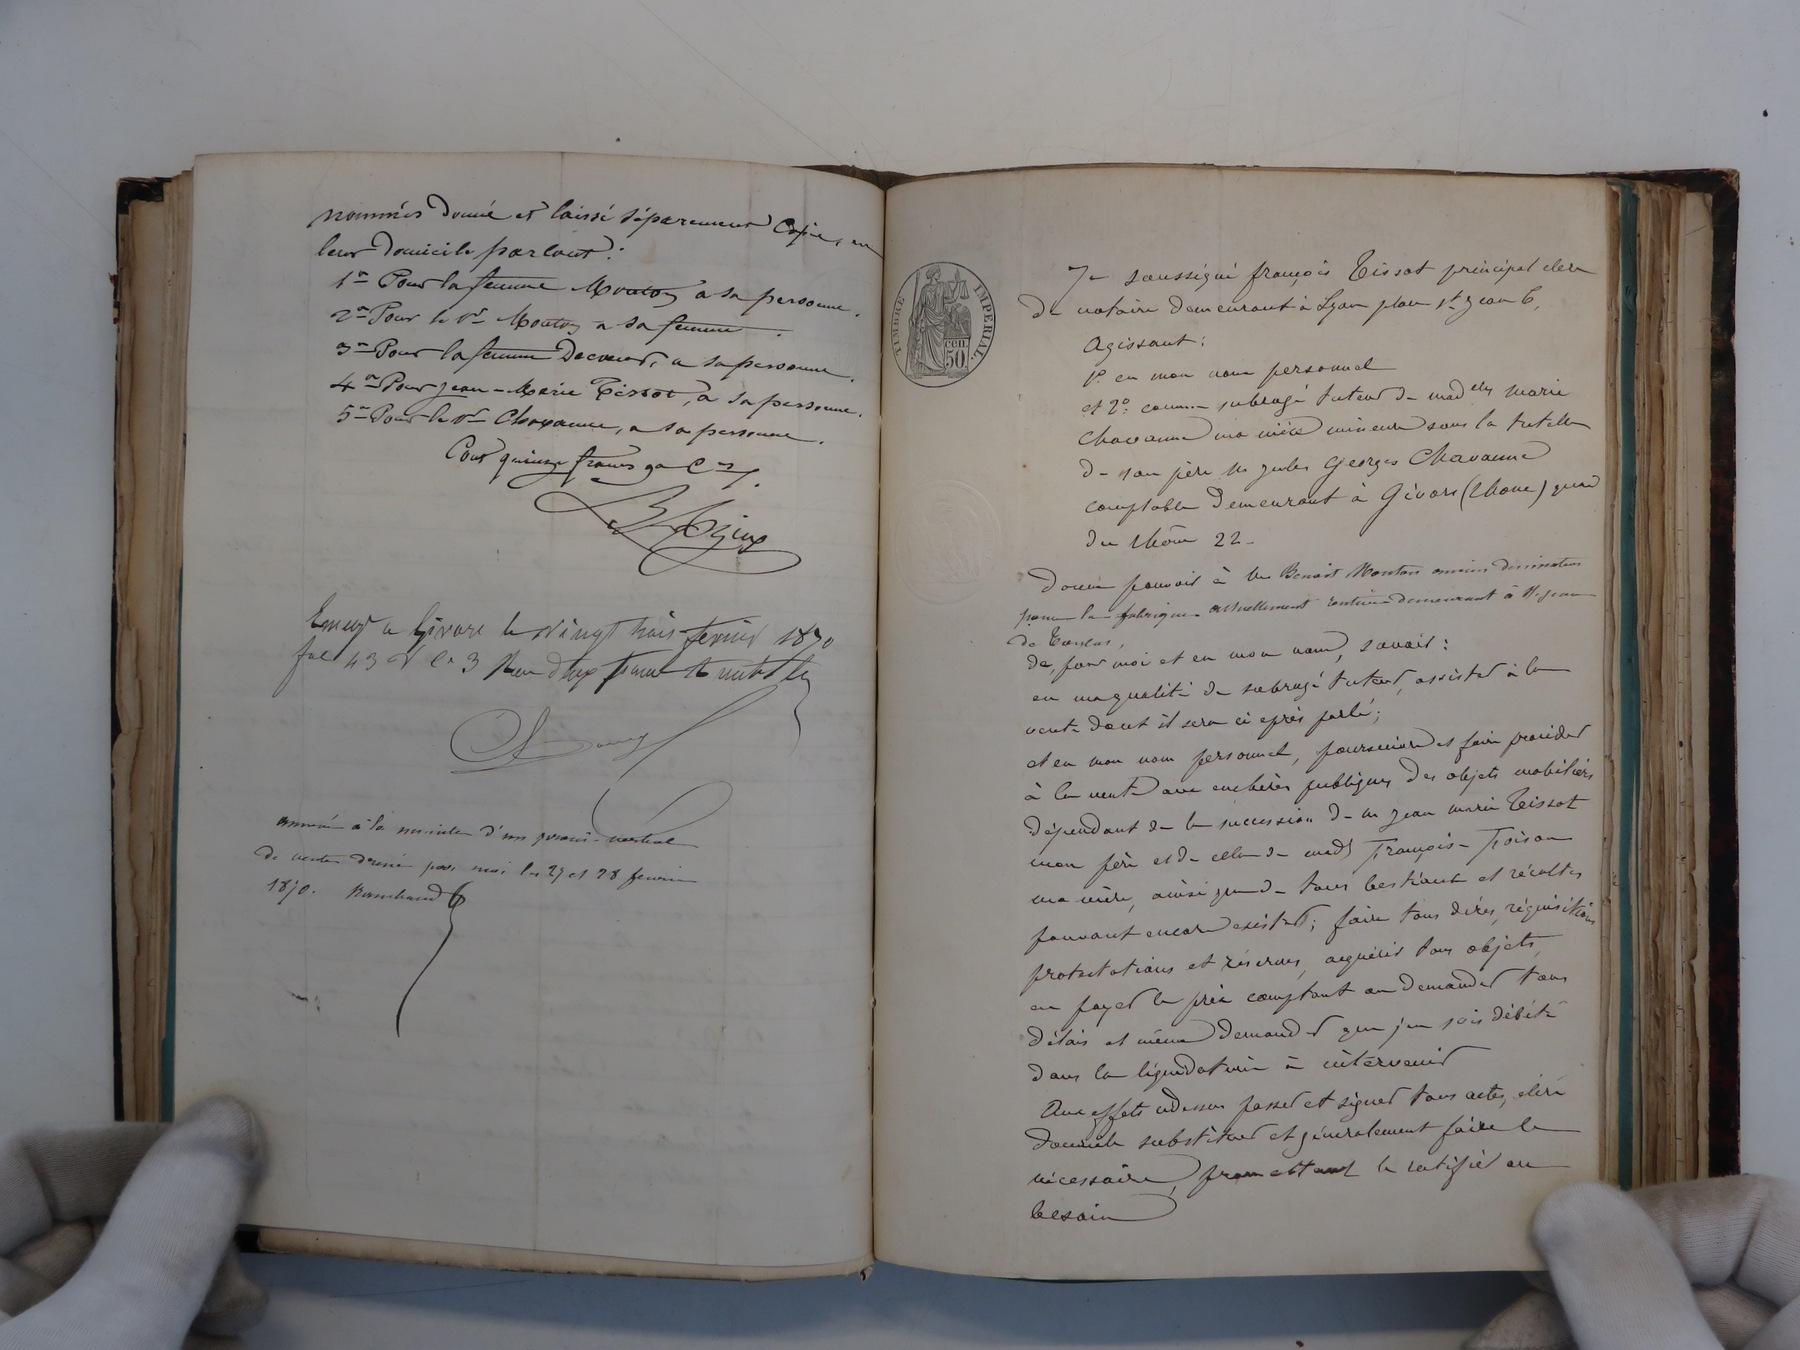 nommés donné et laissé séparement Copies en
leur domicile parlant :
1° Pour la femme Mouton à sa personne.
2° Pour le Sr Mouton a sa femme.
3° Pour la femme a sa personne.
4° Pour Jean-Marie Tissot, à sa personne.
5° Pour le Sr Chavanne, a sa personne.
Cout quinze francs 90 Cmes
Givors le vingt trois février 1870
fol 43 Vo Ce 3 Reçu deux francs
annexé à la minute d'un procès-verbal
de vente dressé par moi les 27 et 28 février
1870.
TIMBRE IMPERIAL.
50 cen
Je soussigné françois Tissot principal clerc
de notaire demeurant à Lyon place St Jean 6,
Agissant :
1° en mon nom personnel
et 2° comme subrogé tuteur de madelle marie
Chavanne ma nièce mineure sous la tutelle
de son père Mr Jules Georges Chavanne
comptable demeurant à Givors (Rhône) quai
du Rhône 22 -
Donne pouvoir à Mr Benoit Mouton ancien dessinateur
pour la fabrique actuellement rentier demeurant à St Jean
de Touslas,
de, pour moi et en mon nom, savoir :
en ma qualité de subrogé tuteur, assister à la
vente dont il sera ci après parlé ;
et en mon nom personnel, poursuivre et faire procéder
à la vente aux enchères publiques des objets mobiliers
dépendant de la succession de Mr Jean marie Tissot
mon père et de celle de made françoise Poison
ma mère, ainsi que de tous bestiaux et récoltes
pouvant encore exister ; faire tous dires, réquisitions
protestations et réserves, acquérir tous objets,
en payer le prix comptant ou demander tous
délais et même demander que j'en sois débité
dans la liquidation à intervenir
Aux effets ci dessus passer et signer tous actes, élire
domicile substituer et généralement faire le
nécessaire, promettant le ratifier au
besoin